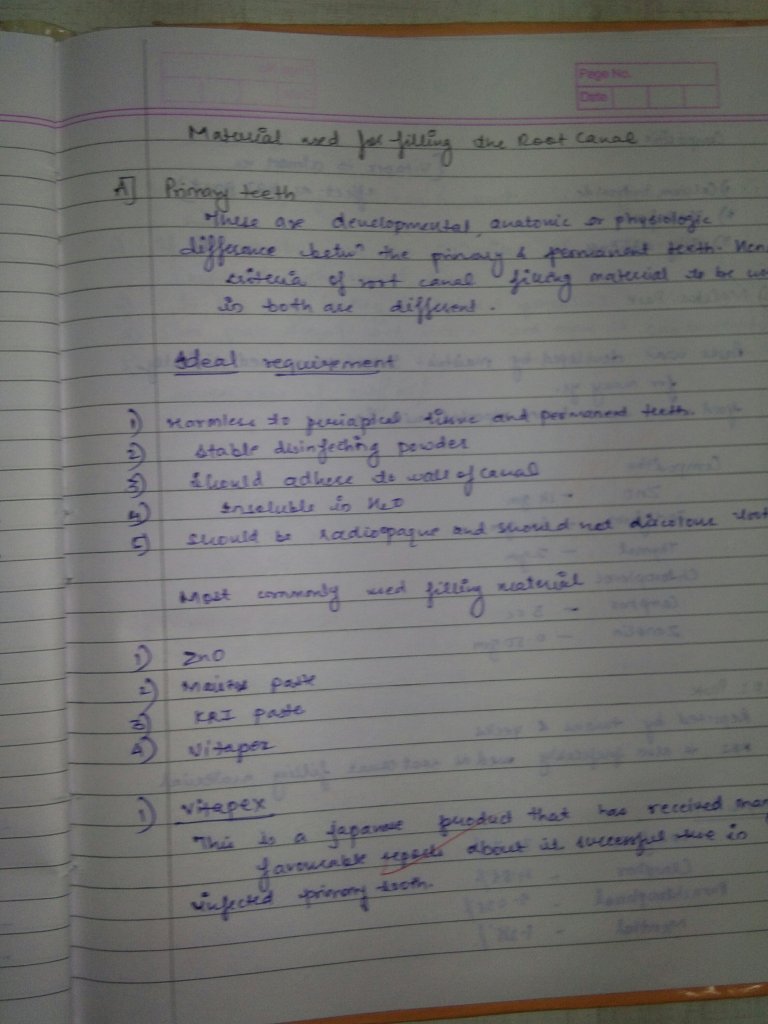 Page No.
Date
Material used for filling the Root Canal
A] Primary teeth
These are developmental, anatomic or physiologic
difference betwn the primary & permanent teeth. Hen
criteria of root canal filling material to be us
in both are different.
Ideal requirement
1) Harmless to periapical tissue and permanent teeth.
2) Stable disinfecting powder
3) Should adhere to wall of canal
4) Insoluble in H2O
5) Should be radiopaque and should not discolour
Most commonly used filling material
1) ZnO
2) paste
3) KRI paste
4) Vitapex
1) Vitapex
This is a Japanese product that has received man
favourable reports about it successful use in
infected primary tooth.